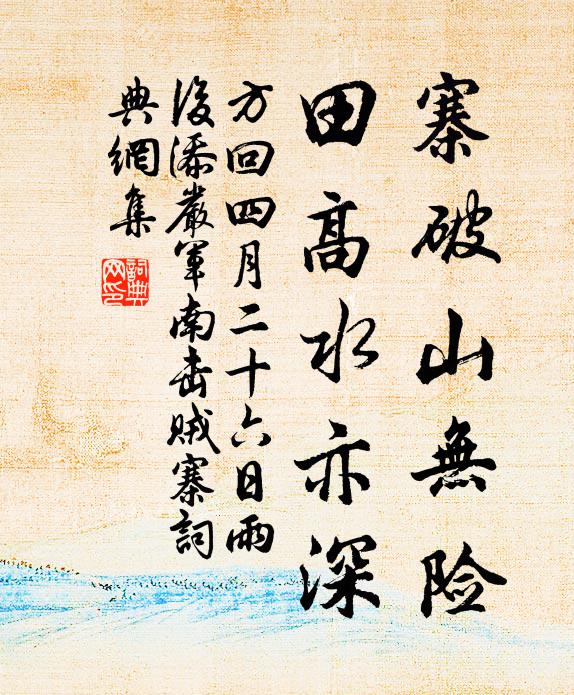 寨破山無险
田高水亦深
方回四月二十六日雨
後添嚴軍南击贼寨詞
典網集
詞典网印